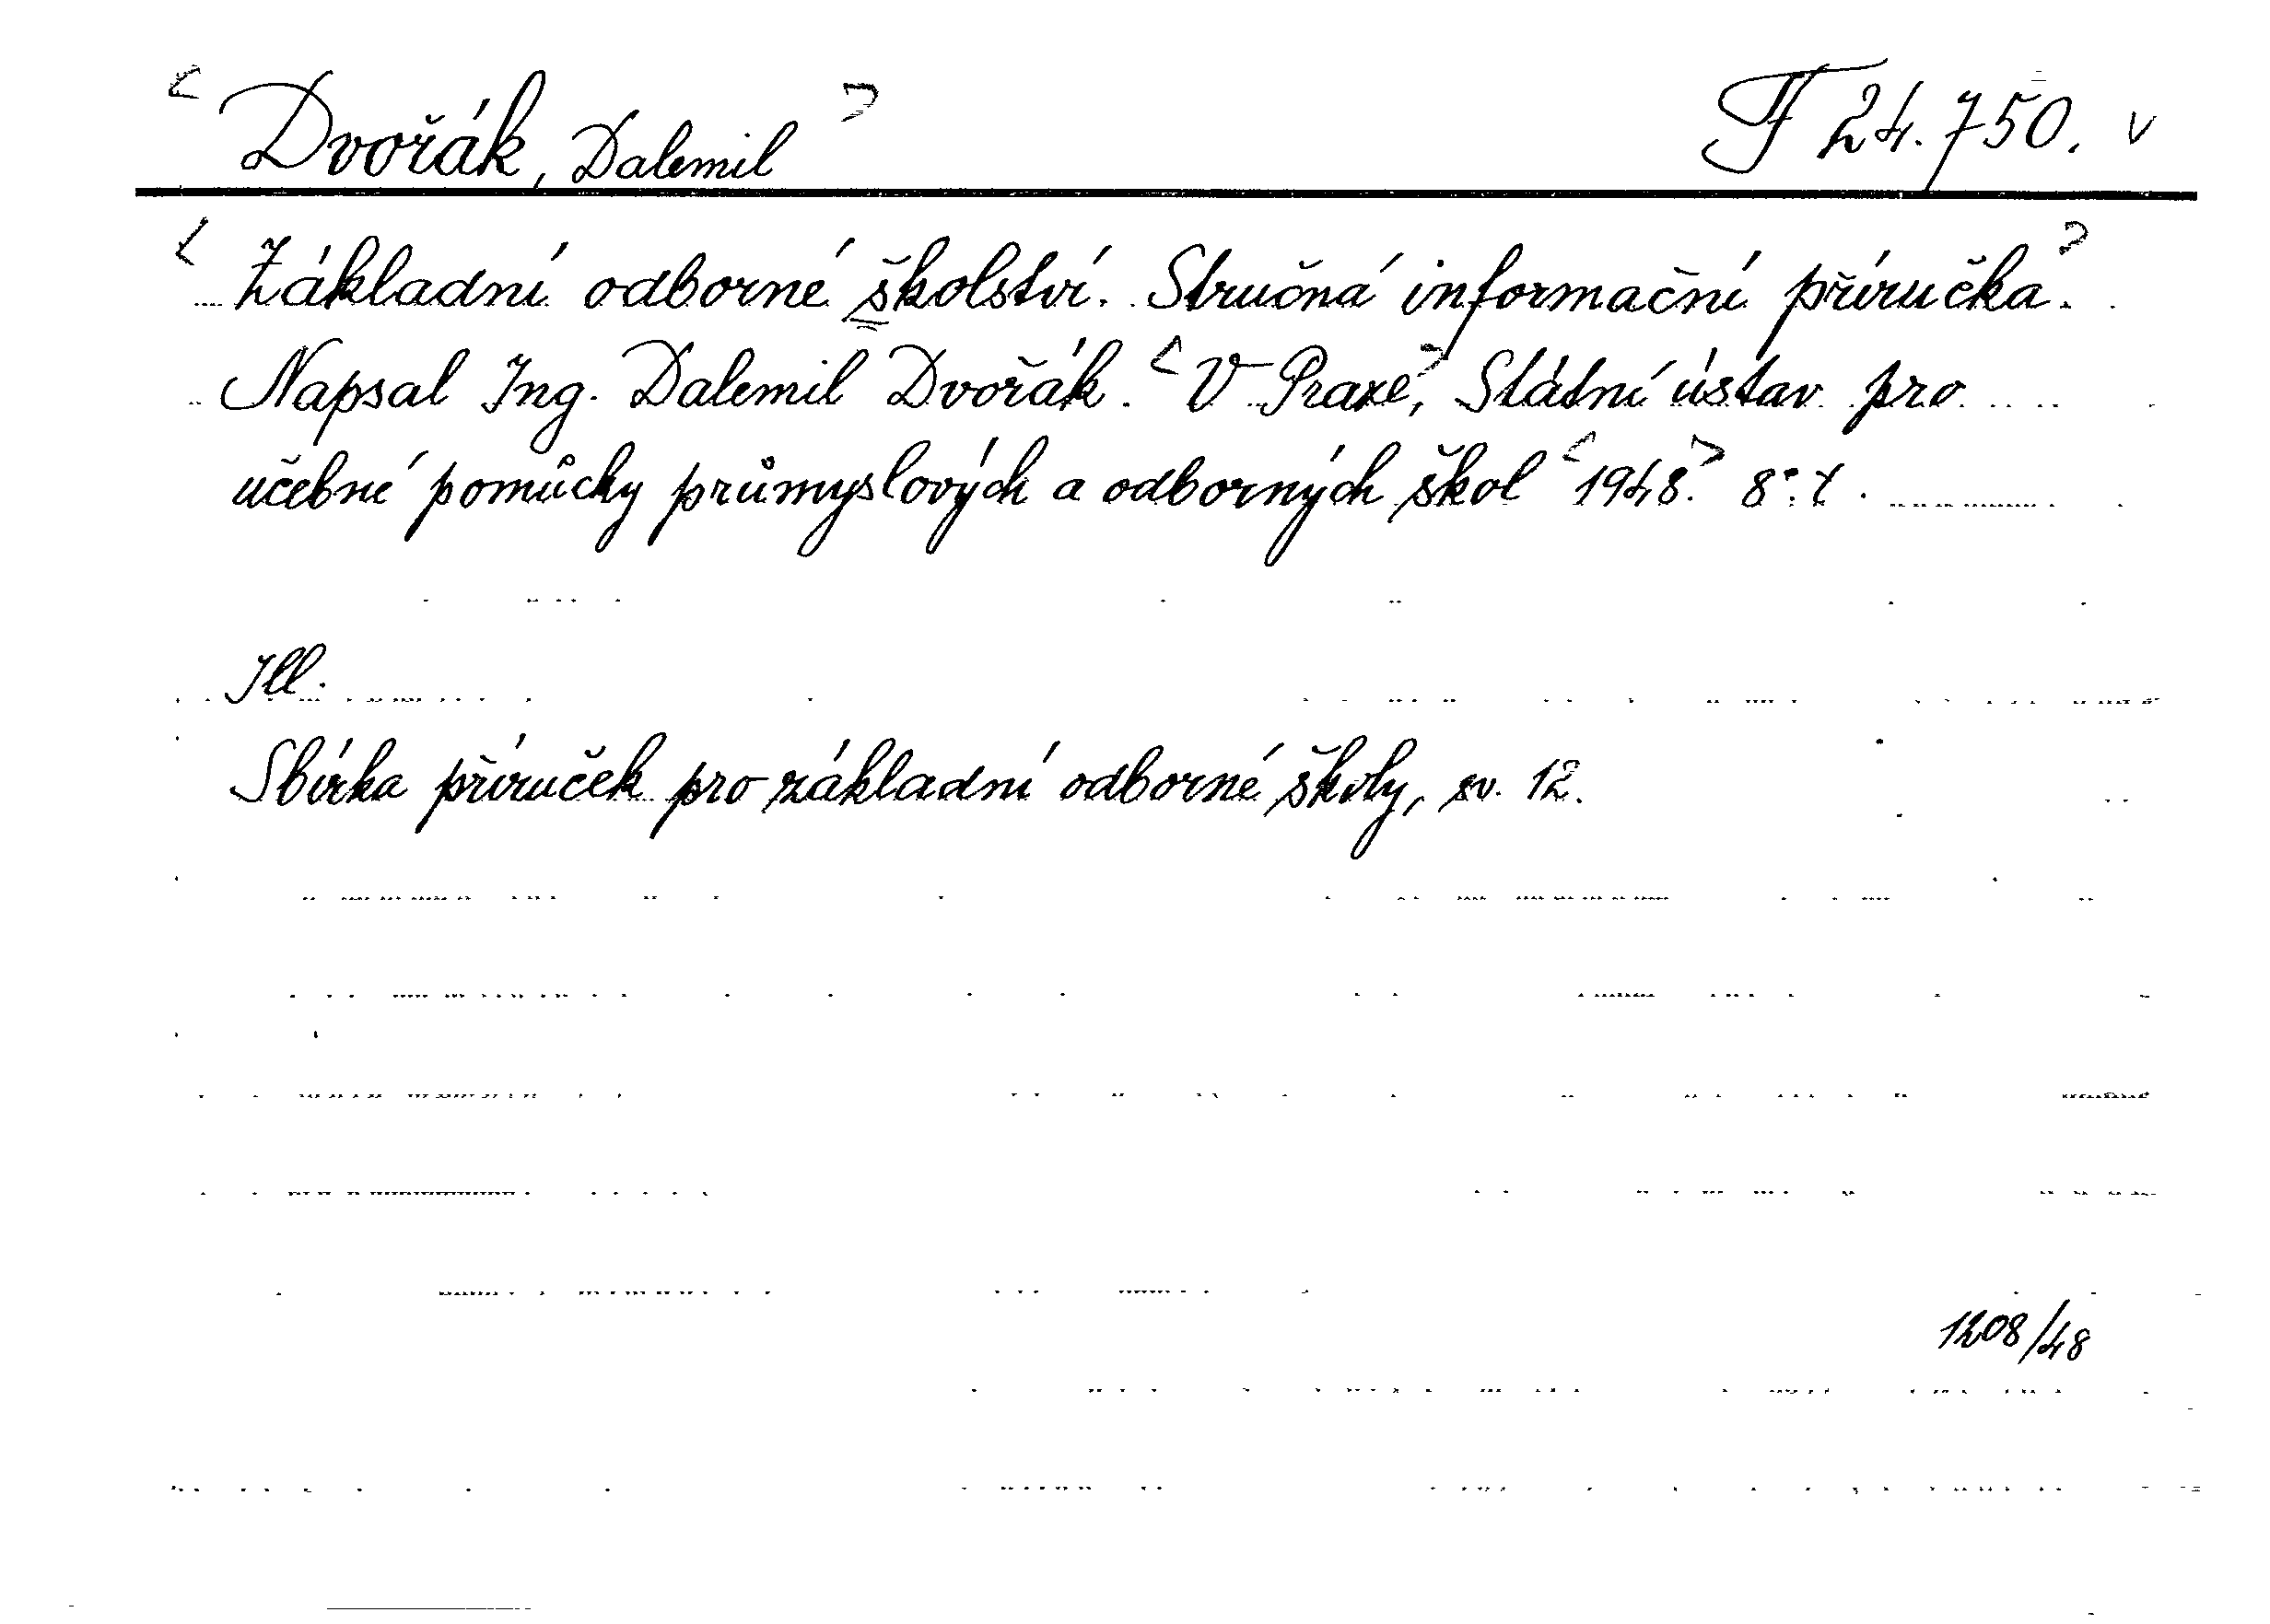 <Dvořák, Dalemil> F 24.750. v
<Základní odborné školství. Stručná informační příručka.>
Napsal Ing. Dalemil Dvořák. <V Praze>, Státní ústav pro
učebné pomůcky průmyslových a odborných škol <1948.> 8°.
Ill.
Sbírka příruček pro základní odborné školy, sv. 12.
1208/48